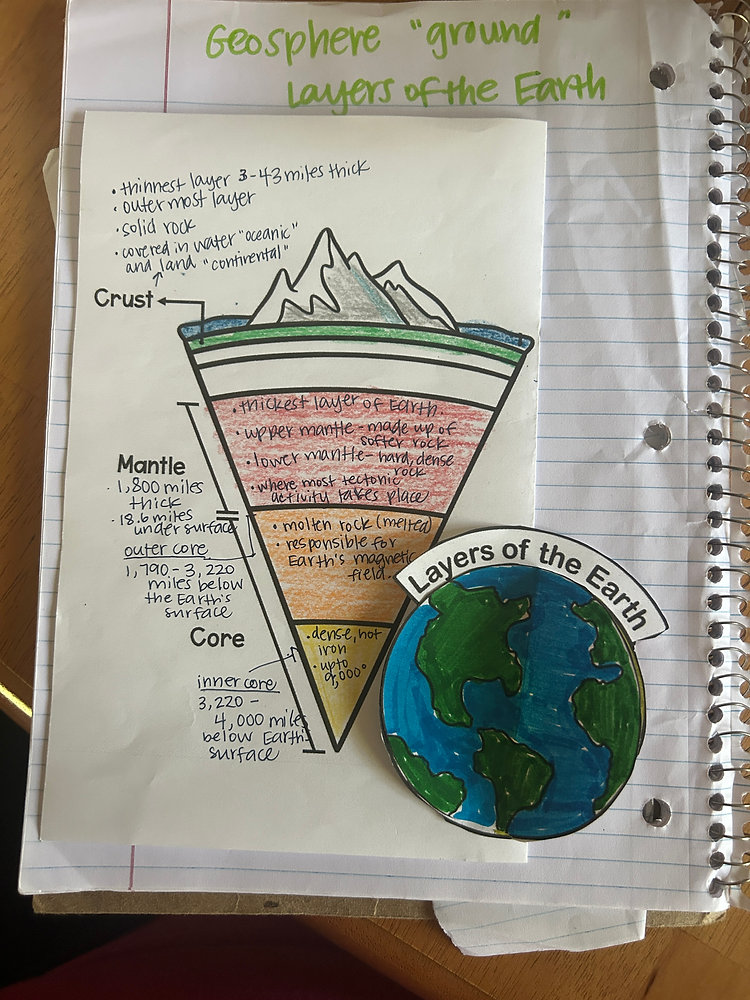 Geosphere "ground"
Layers of the Earth
• thinnest layer 3-43 miles thick
• outer most layer
• solid rock
• covered in water "oceanic"
and land "continental"
Crust
• thickest layer of Earth
• upper mantle - made up of
softer rock
• lower mantle - hard, dense
rock
• where most tectonic
activity takes place
Mantle
• 1,800 miles
thick
• 18.6 miles
under surface
outer core
1,790 - 3,220
miles below
the Earth's
surface
• molten rock (melted)
• responsible for
Earth's magnetic
field.
Core
• dense, hot
iron
• up to
inner core
3,220 -
4,000 miles
below Earth's
surface
Layers of the Earth